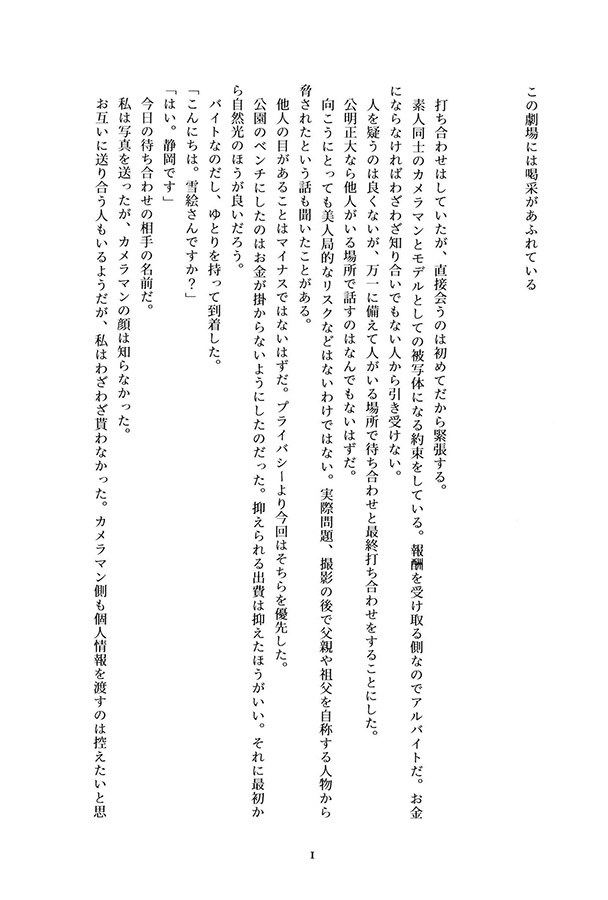 この劇場には喝采があふれている
打ち合わせはしていたが、直接会うのは初めてだから緊張する。
素人同士のカメラマンとモデルとしての被写体になる約束をしている。報酬を受け取る側なのでアルバイトだ。お金
にならなければわざわざ知り合いでもない人から引き受けない。
人を疑うのは良くないが、万一に備えて人がいる場所で待ち合わせと最終打ち合わせをすることにした。
公明正大なら他人がいる場所で話すのはなんでもないはずだ。
向こうにとっても美人局的なリスクなどはないわけではない。実際問題、撮影の後で父親や祖父を自称する人物から
脅されたという話も聞いたことがある。
他人の目があることはマイナスではないはずだ。プライバシーより今回はそちらを優先した。
公園のベンチにしたのはお金が掛からないようにしたのだった。抑えられる出費は抑えたほうがいい。それに最初か
ら自然光のほうが良いだろう。
バイトなのだし、ゆとりを持って到着した。
「こんにちは。雪絵さんですか？」
「はい。静岡です」
今日の待ち合わせの相手の名前だ。
私は写真を送ったが、カメラマンの顔は知らなかった。
お互いに送り合う人もいるようだが、私はわざわざ貰わなかった。カメラマン側も個人情報を渡すのは控えたいと思
1